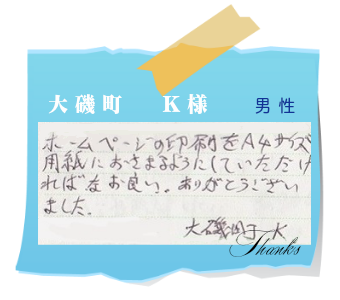 大磯町 K様 男性
ホームページの印刷をA4サイズ
用紙におさまるようにしていただけ
ればなお良い。ありがとうござい
ました。
大磯町 K
Thanks